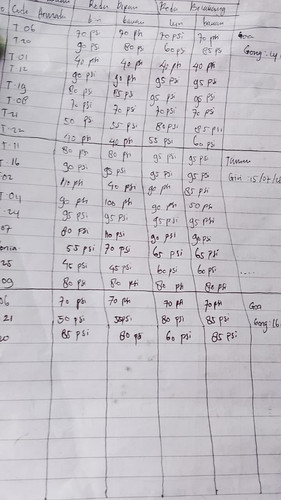 Code Roda Depan Roda Belakang
kiri kanan kiri kanan
T.06 70 psi 70 psi 70 psi 70 psi Goa
T.20 90 psi 80 ps 60 psi 85 psi Gong:
T.01 40 psi 40 psi 40 psi 40 psi
T.12 90 psi 90 psi 95 psi 95 psi
T.19 80 psi 85 psi 95 psi 95 psi
T.08 70 psi 70 psi 70 psi 70 psi
T.21 50 psi 55 psi 80 psi 85 psi
T.22 40 psi 40 psi 55 psi 60 psi
T.11 80 psi 80 psi 95 psi 95 psi
T.16 90 psi 95 psi 95 psi 95 psi
02 40 psi 90 psi 85 psi
T.04 90 psi 100 psi 90 psi 50 psi
.24 95 psi 95 psi 95 psi 95 psi
07 80 psi 80 psi 90 psi 90 psi
55 psi 70 psi 65 psi 65 psi
25 45 psi 45 psi 60 psi 60 psi ....
09 80 psi 80 psi 80 psi 80 psi
06 70 psi 70 psi 70 psi 70 psi Goa
21 50 psi 55 psi 80 psi 85 psi Gong:
20 85 psi 80 psi 60 psi 85 psi